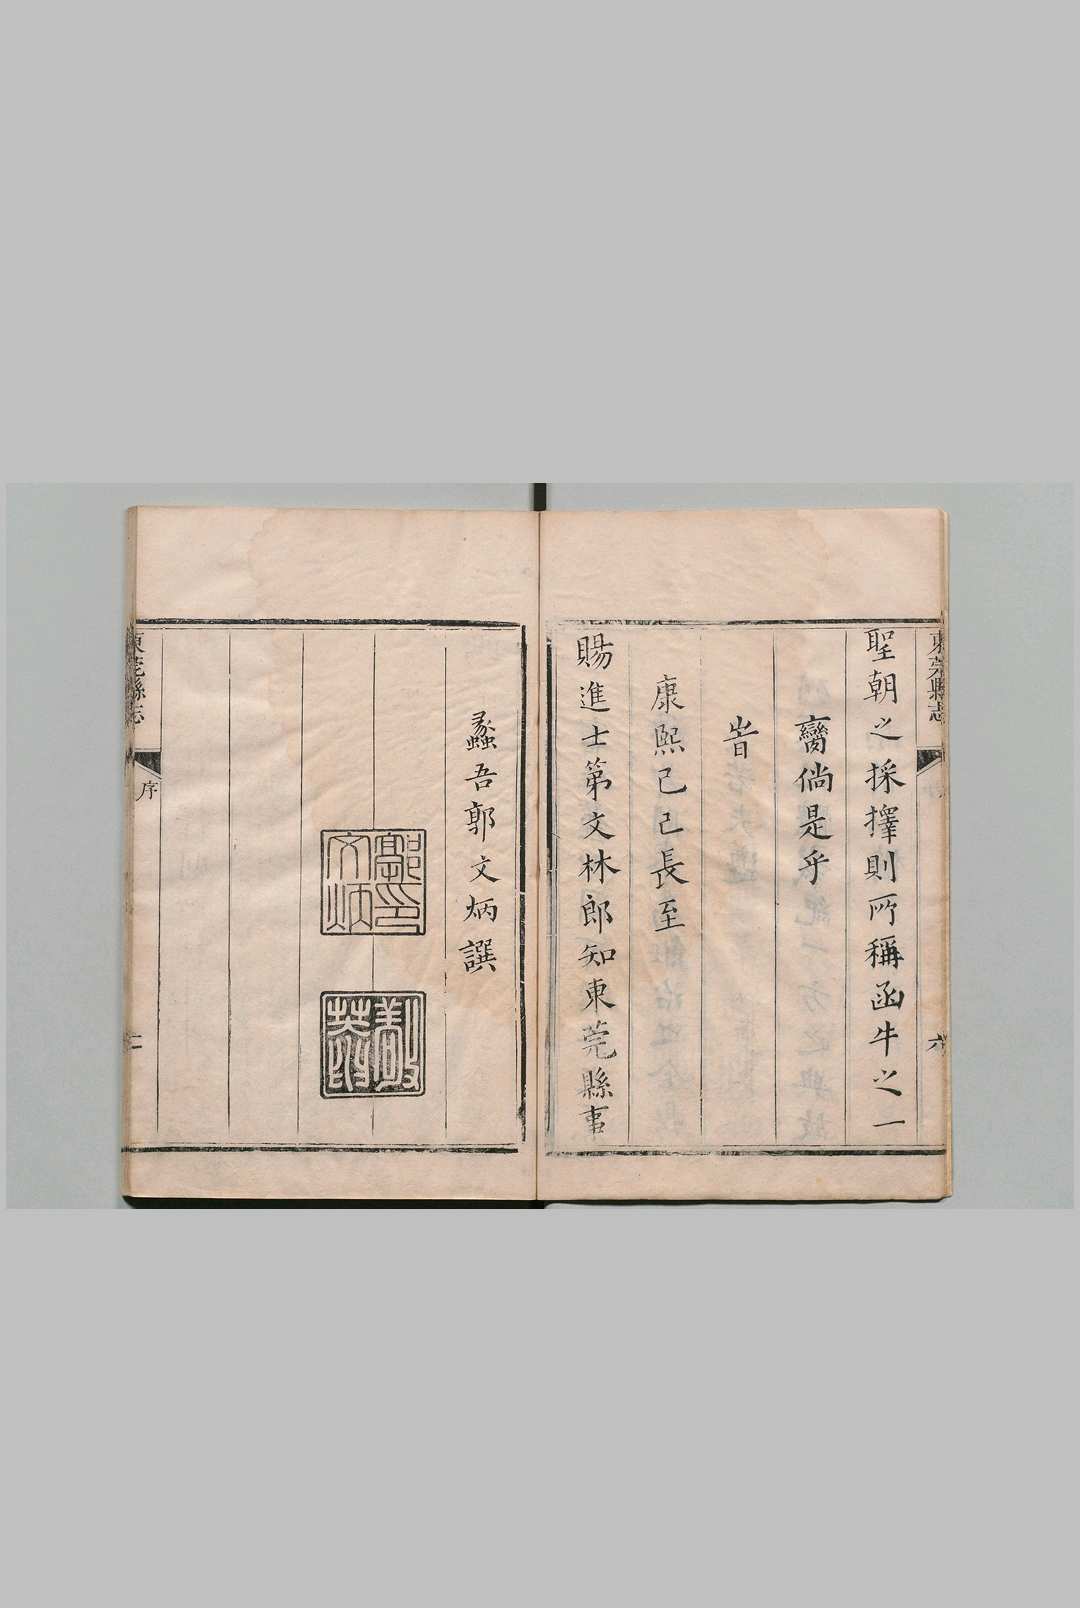 東莞縣志
六
聖朝之採擇則所稱函牛之一
臠倘是乎
旹
康熙己巳長至
賜進士第文林郎知東莞縣事
蠡吾郭文炳譔
郭文炳印
東莞縣志
序